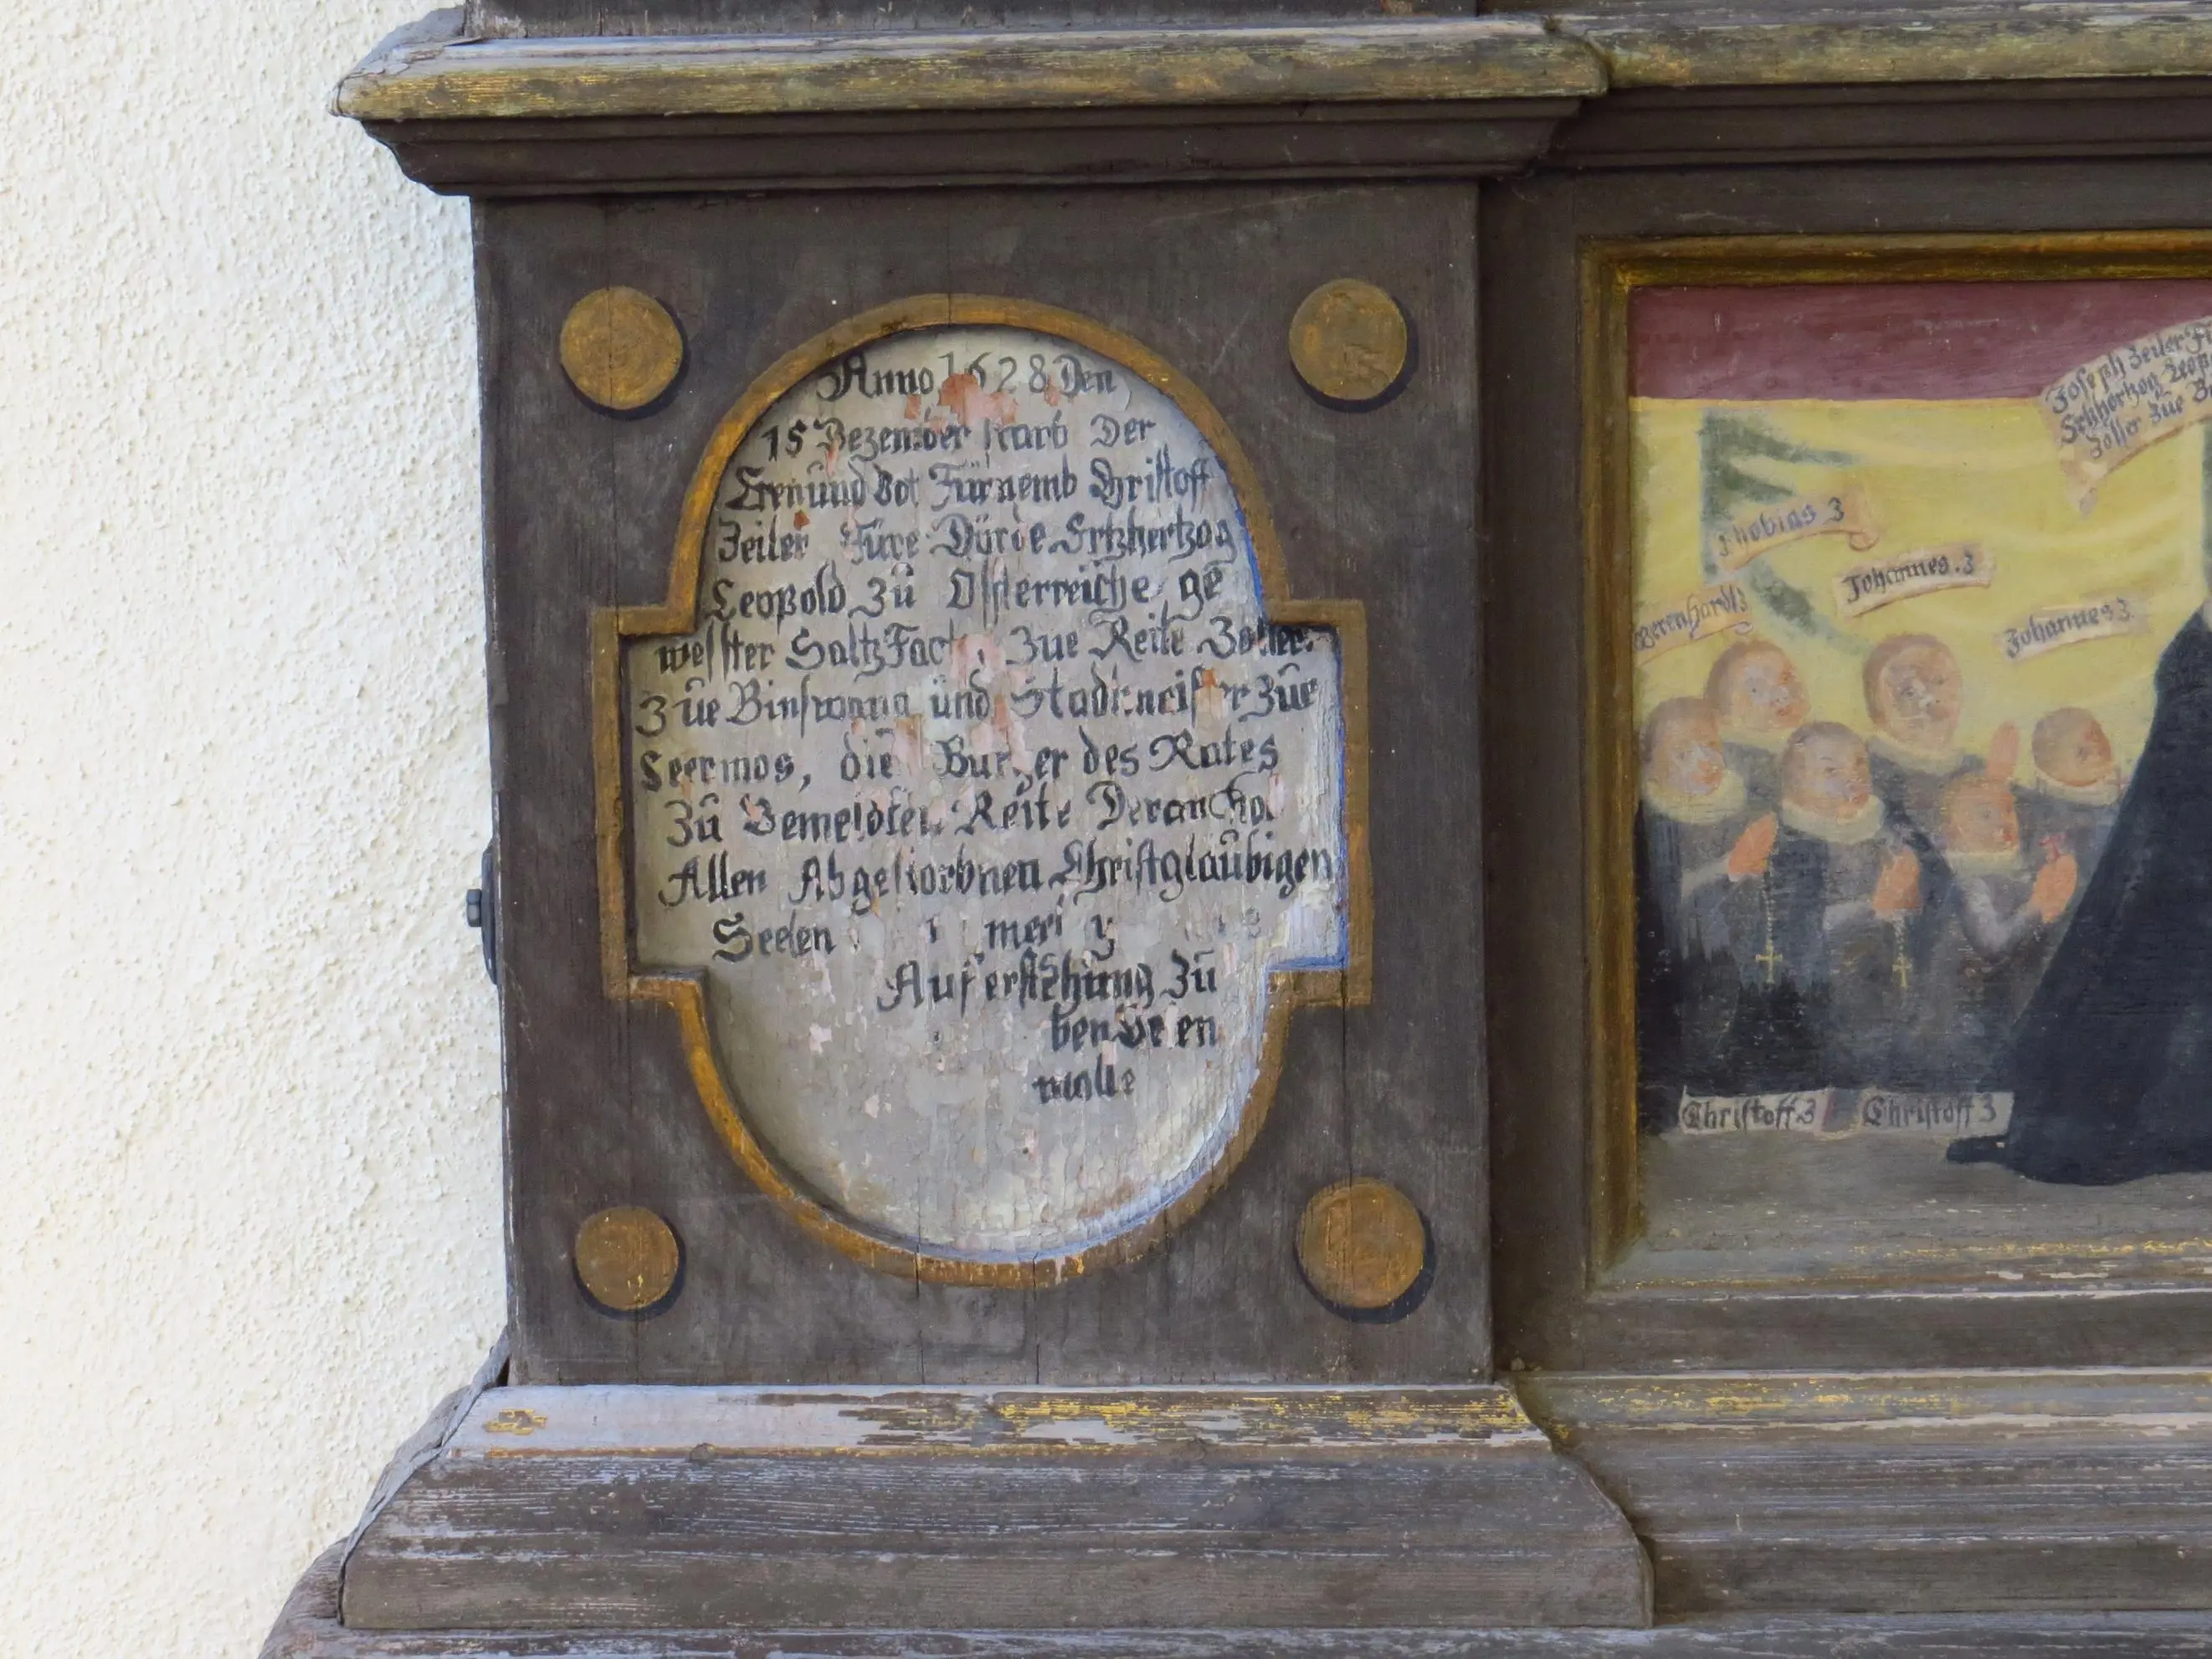 Anno 1628 Den
15 Dezember starb Der
Ern und Fürnemb Christoff
Zeiler Füre Dürde Ertzhertzog
Leopold zu Össterreiche ge
wesster Saltz Fact zue Reite Zoller
Zue Binswang und Stadlmeister Zue
Leermos, die Burger des Rates
Zu Bemeldten Reite Deran
Allen Abgestorbnen Christglaubigen
Seelen
Auferstehung zu
wolle
Joseph Zeiler
Ertzhertzog
Zoller Zue
Thobias 3
Johannes. 3
Berenhardt 3
Johannes 3
Christoff. 3 Christoff 3